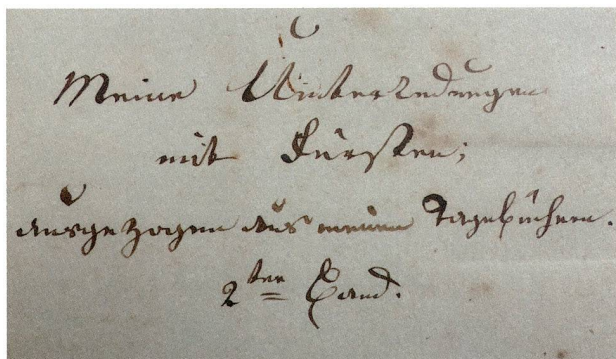 Meine Unterredungen
mit Fürsten;
ausgezogen aus meinen Tagebüchern.
2ter Band.